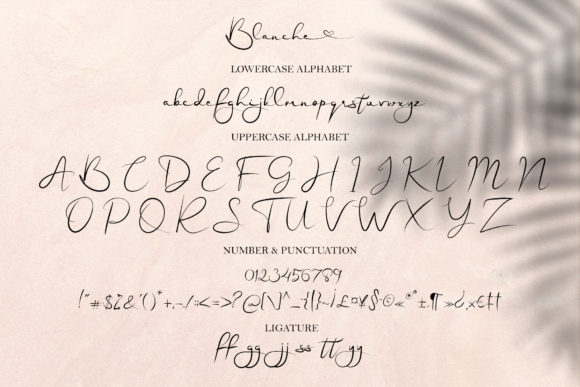 Blanche
LOWERCASE ALPHABET
abcdefghijklmnopqrstuvwxyz
UPPERCASE ALPHABET
ABCDEFGHIJKLMN
OPQRSTUVWXYZ
NUMBER & PUNCTUATION
0123456789
!"#$%&'()*+,-./:;<=>?@[\]^_{|}~¡£¤¥§¨©«®°±¶»¿×€‡†
LIGATURE
ff gg jj ss tt yy